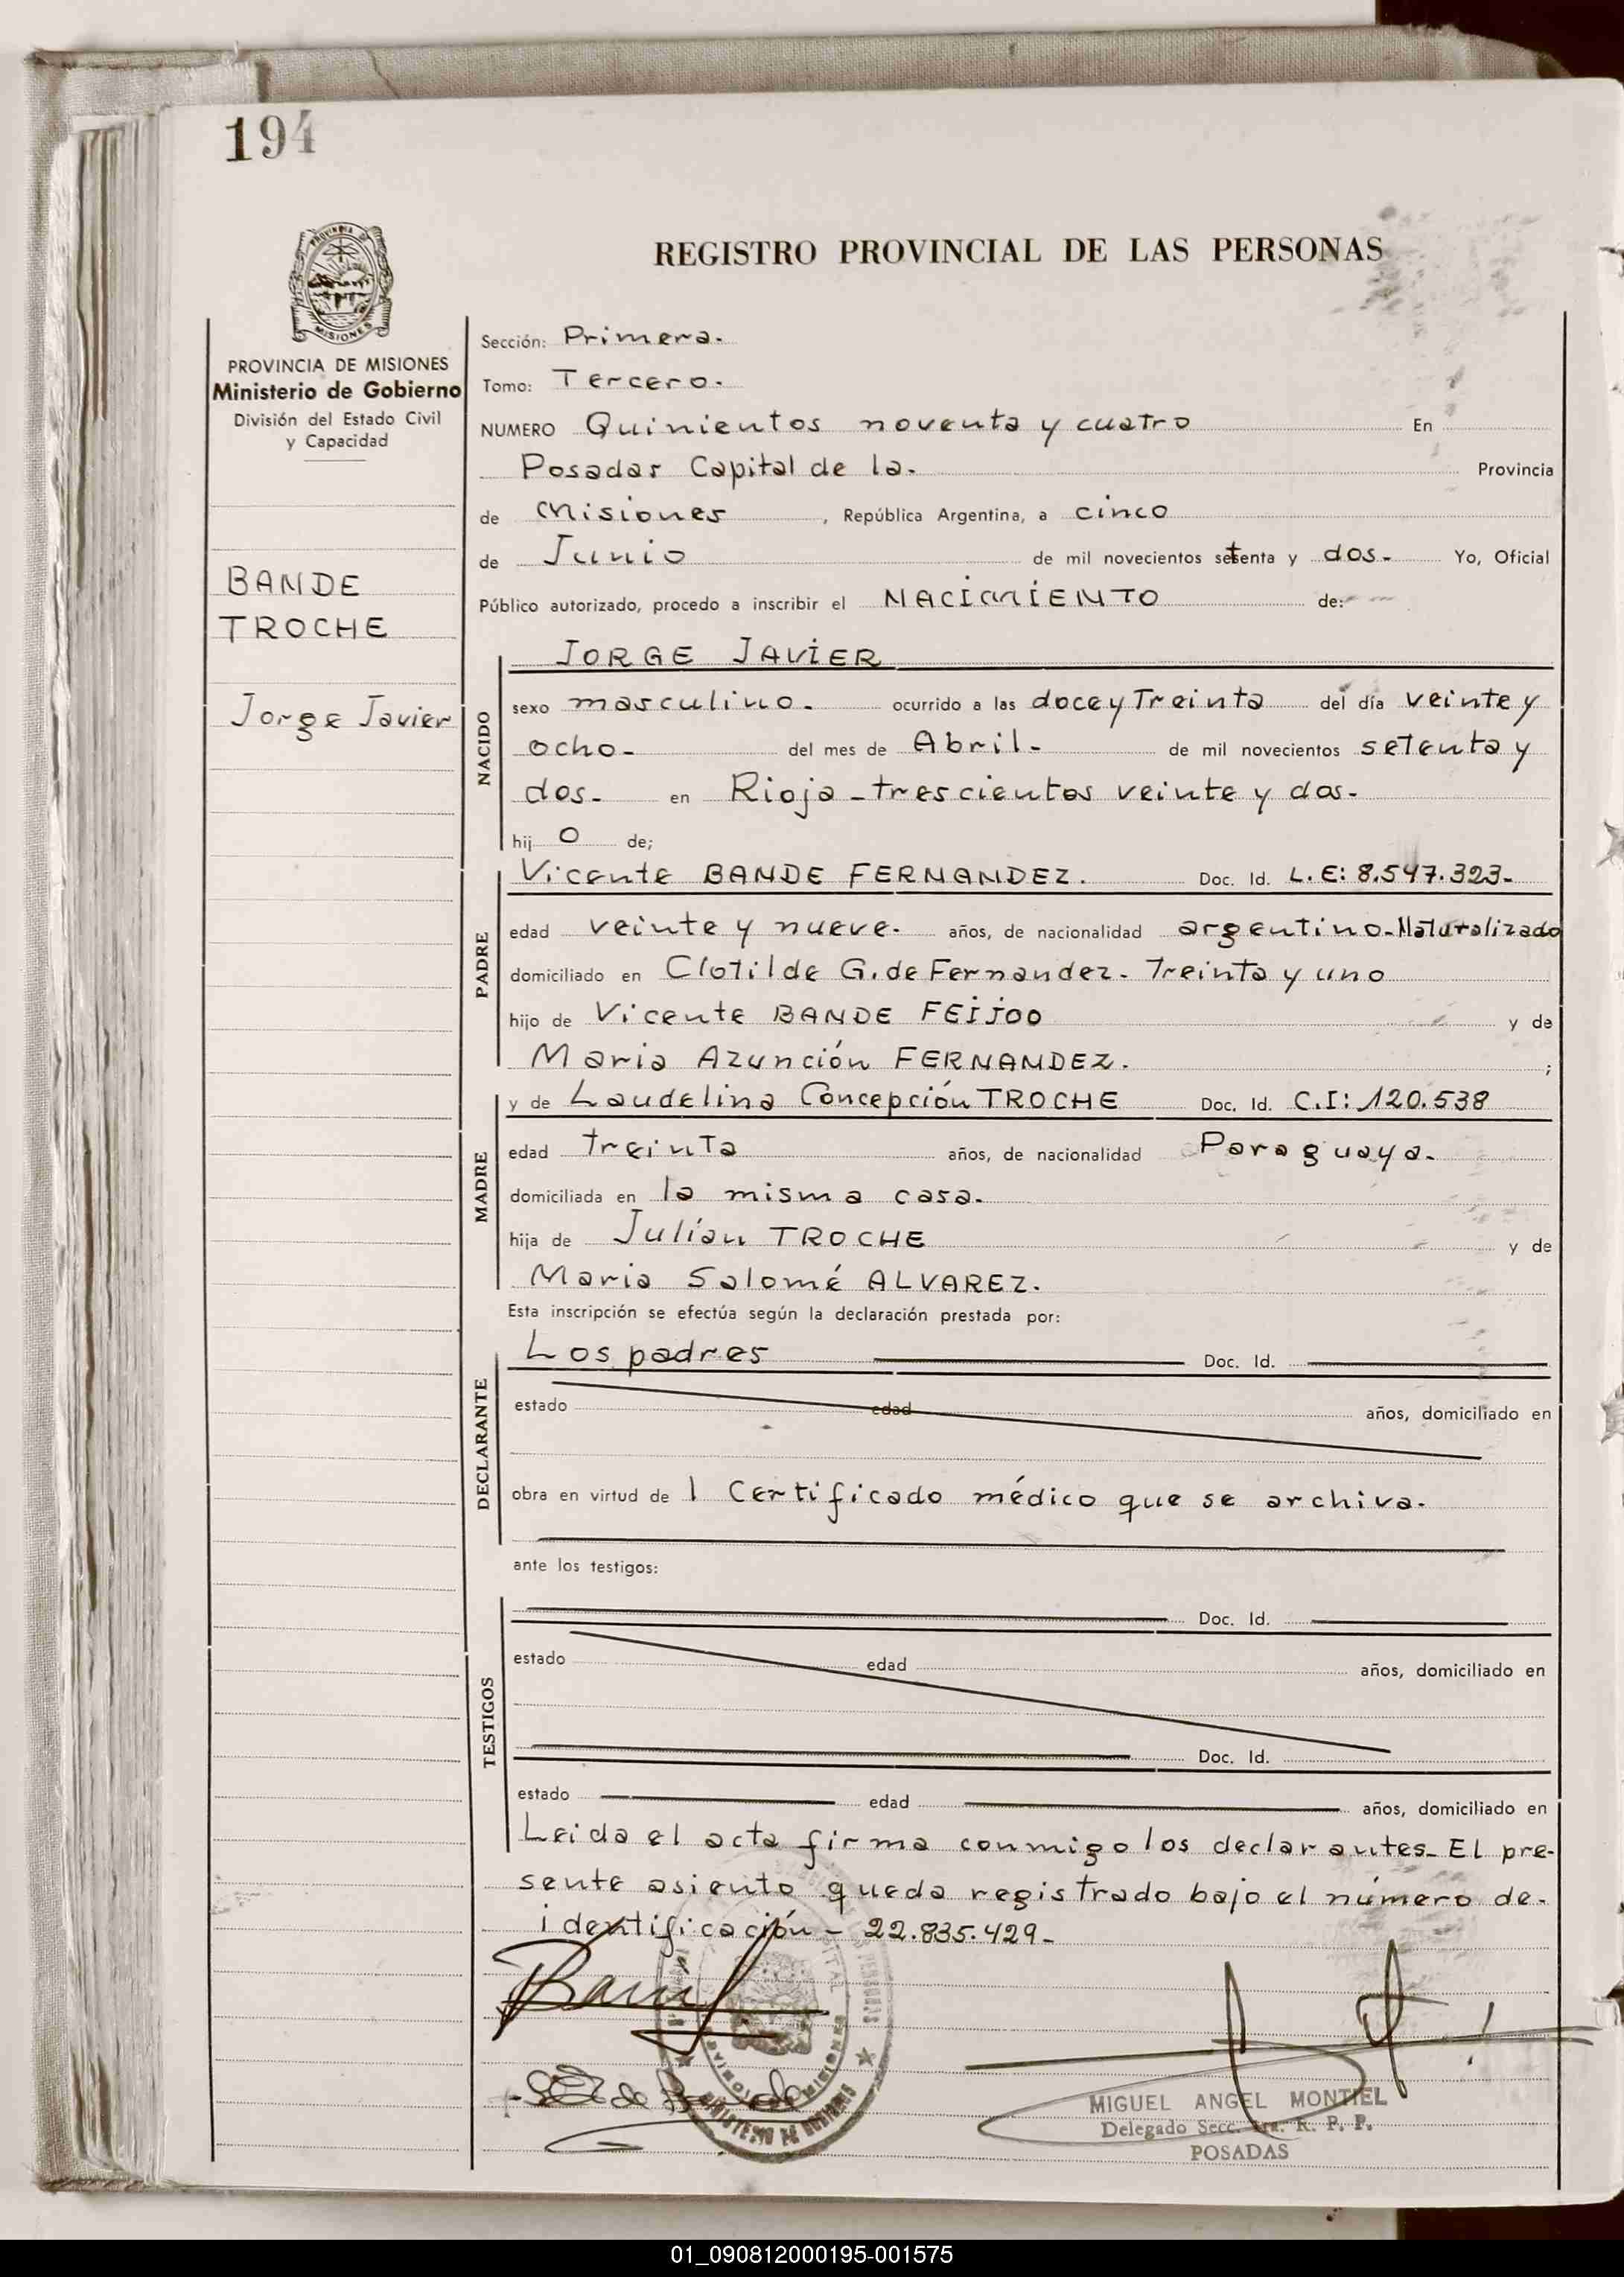 194
PROVINCIA DE MISIONES
Ministerio de Gobierno
División del Estado Civil
y Capacidad
BANDE
TROCHE
Jorge Javier
REGISTRO PROVINCIAL DE LAS PERSONAS
Sección: Primera.
Tomo: Tercero.
NUMERO Quinientos noventa y cuatro En
Posadas Capital de la. Provincia
de Misiones , República Argentina, a cinco
de Junio de mil novecientos setenta y dos. Yo, Oficial
Público autorizado, procedo a inscribir el NACIMIENTO de:
JORGE JAVIER
NACIDO
sexo masculino. ocurrido a las doce y Treinta del día veinte y
ocho- del mes de Abril- de mil novecientos setenta y
dos. en Rioja - trescientos veinte y dos.
hij o de;
PADRE
Vicente BANDE FERNANDEZ. Doc. Id. L.E: 8.547.323-
edad veinte y nueve. años, de nacionalidad argentino-Naturalizado
domiciliado en Clotilde G. de Fernandez. Treinta y uno
hijo de Vicente BANDE FEIJOO y de
Maria Azunción FERNANDEZ. ;
MADRE
y de Laudelina Concepción TROCHE Doc. Id. C.I: 120.538
edad treinta años, de nacionalidad Paraguaya.
domiciliada en la misma casa.
hija de Julián TROCHE y de
Maria Salomé ALVAREZ.
Esta inscripción se efectúa según la declaración prestada por:
DECLARANTE
Los padres Doc. Id.
estado edad años, domiciliado en
obra en virtud de 1 Certificado médico que se archiva.
ante los testigos:
TESTIGOS
Doc. Id.
estado edad años, domiciliado en
Doc. Id.
estado edad años, domiciliado en
Leida el acta firma conmigo los declarantes- El pre-
sente asiento queda registrado bajo el número de-
identificación - 22.835.429-
MIGUEL ANGEL MONTIEL
Delegado Secc. 1ra. R. P. P.
POSADAS
01_090812000195-001575